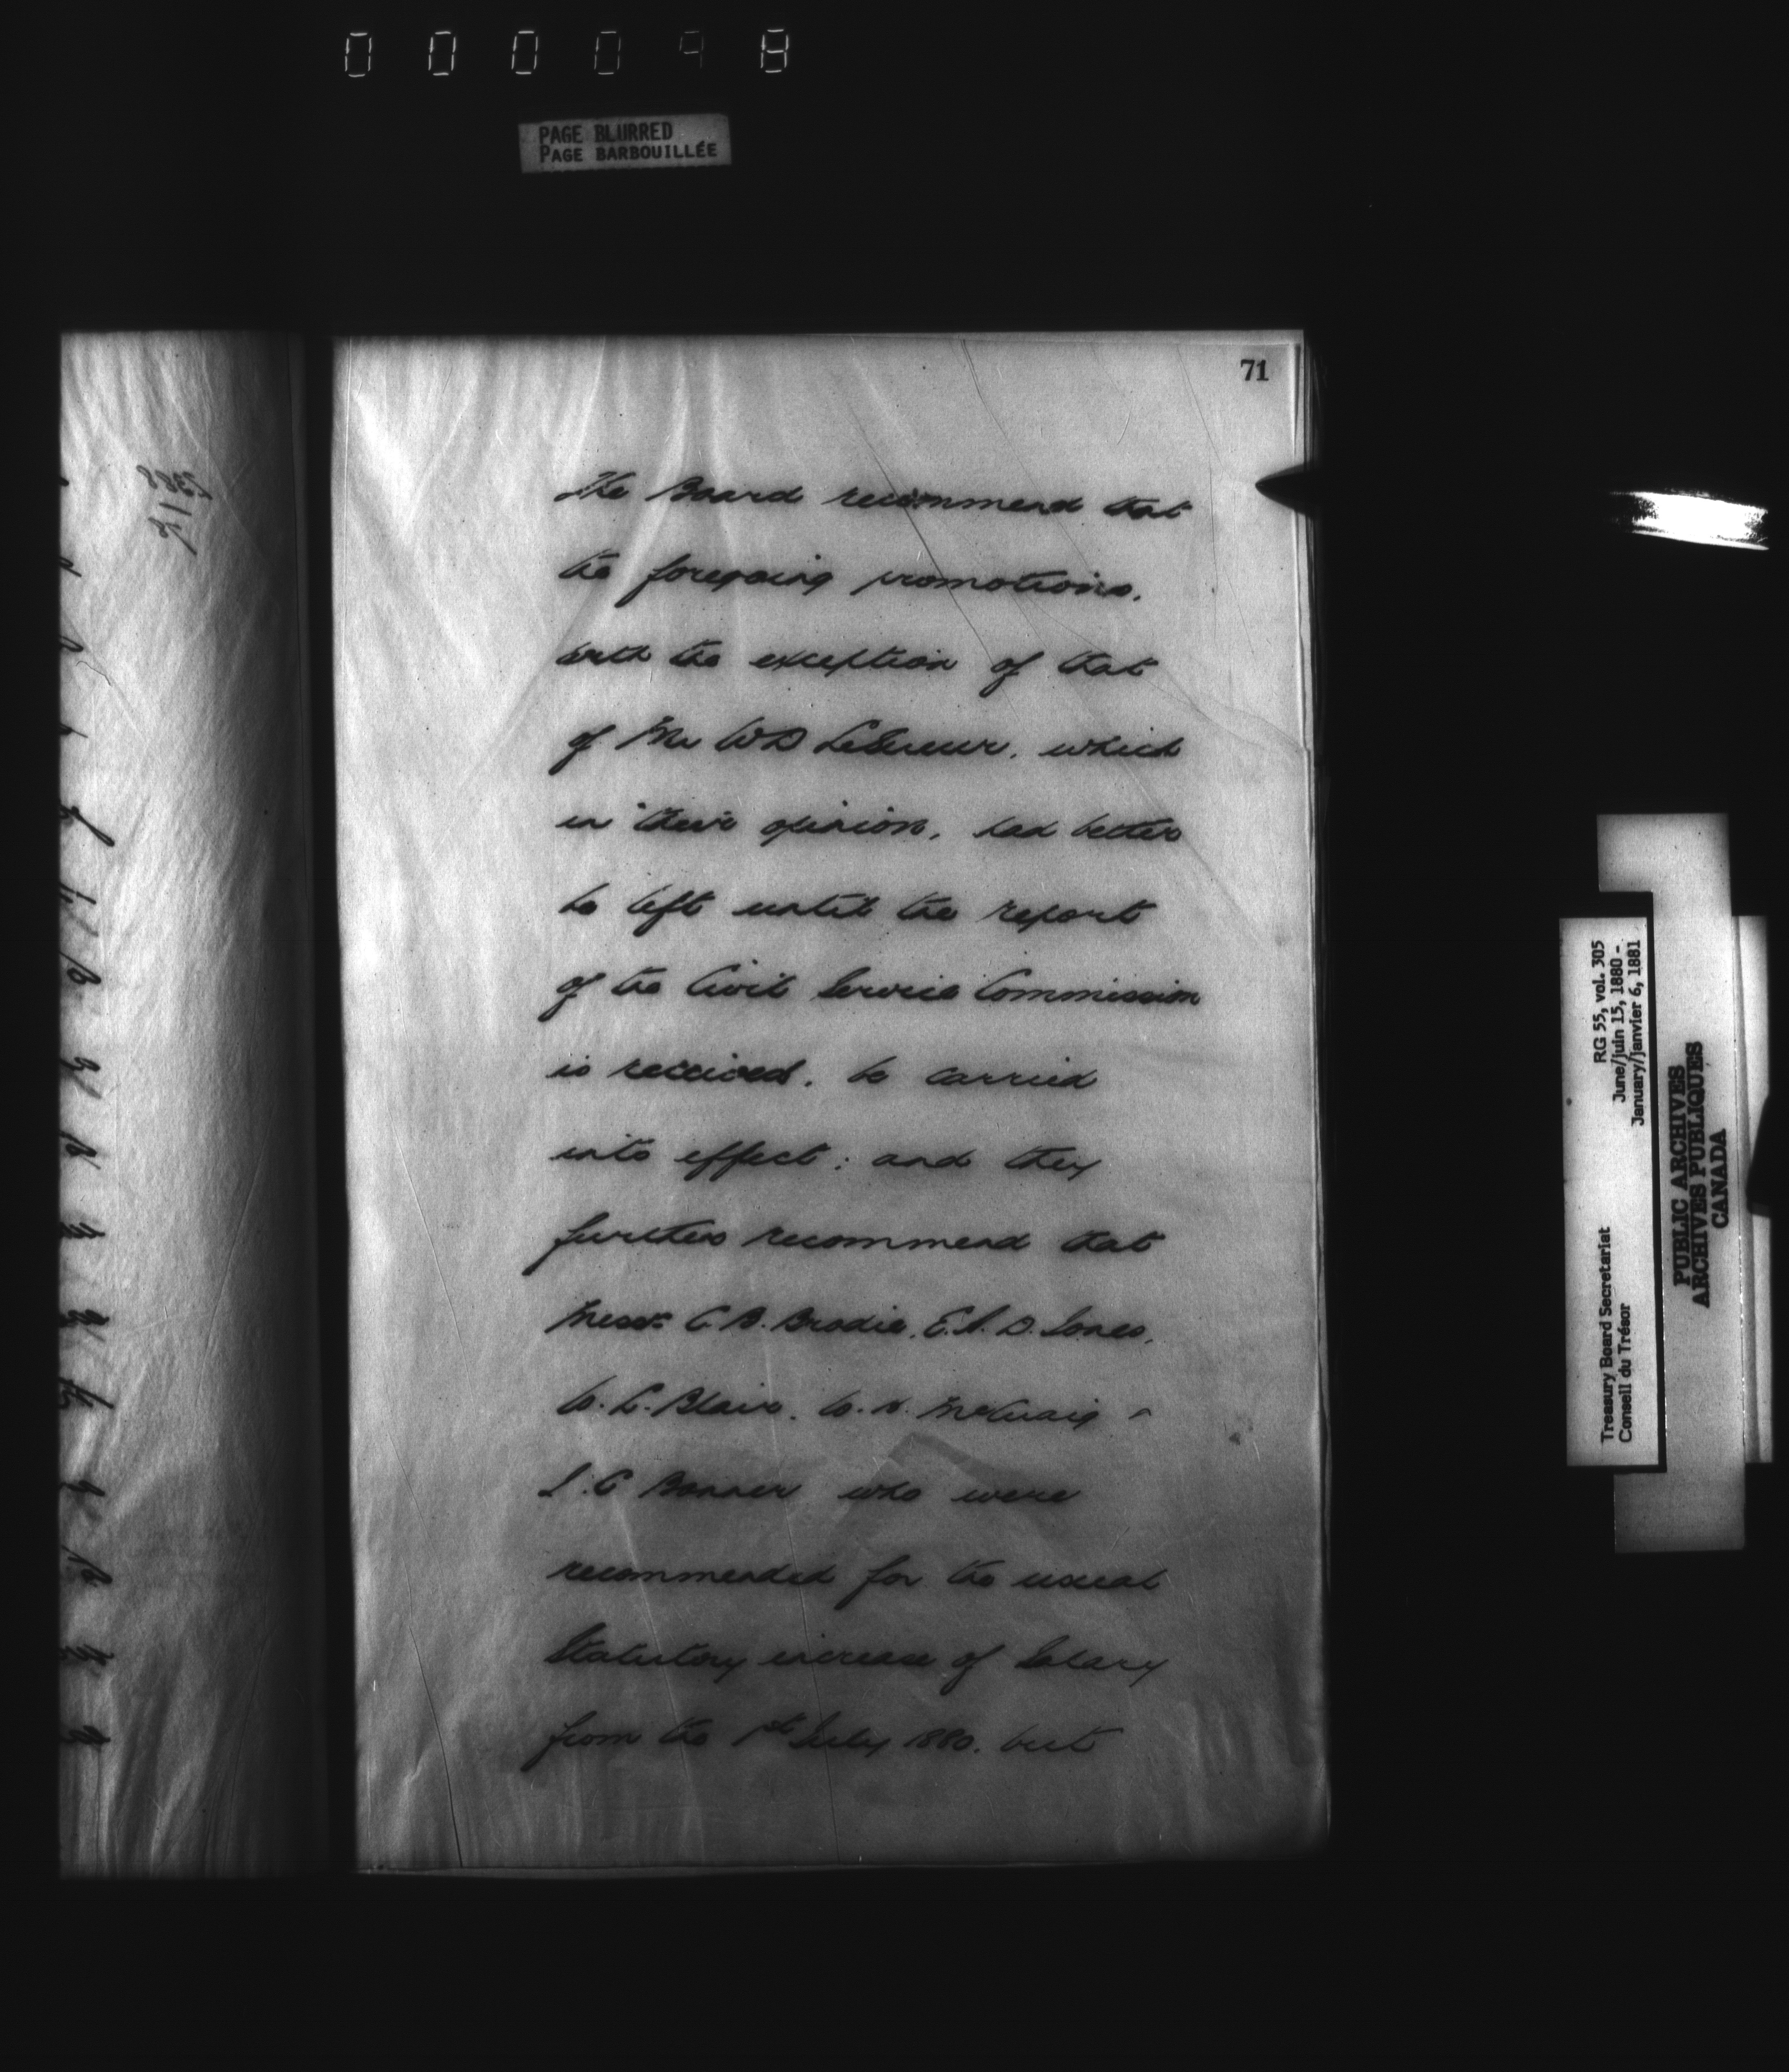 000098
PAGE BLURRED
PAGE BARBOUILLÉE
71
The Board recommend that
the foregoing promotions,
with the exception of that
of Mr W D LeSueur, which
in their opinion, had better
be left until the report
of the Civil Service Commission
is received, be carried
into effect; and they
further recommend that
Messrs C. B. Brodie, E. D. Jones,
W. L. Blair, McCuaig
Bonner who were
recommended for the usual
Statutory increase of Salary
from the 1st July 1880, but
RG 55, vol. 305
June/juin 15, 1880 -
January/janvier 6, 1881
Treasury Board Secretariat
Conseil du Trésor
PUBLIC ARCHIVES
ARCHIVES PUBLIQUES
CANADA